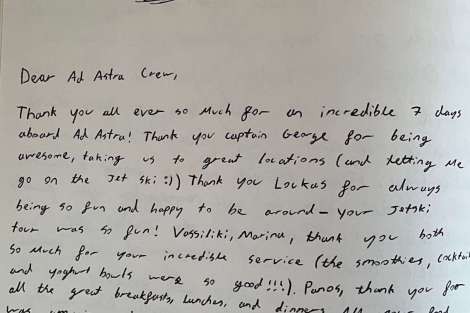 Dear Ad Astra Crew,
Thank you all ever so much for an incredible 7 days
aboard Ad Astra! Thank you captain George for being
awesome, taking us to great locations (and letting me
go on the Jet Ski :)) Thank you Loukas for always
being so fun and happy to be around - your Jetski
tour was so fun! Vassiliki, Marina, thank you both
so much for your incredible service (the smoothies, cocktai
and yoghurt bowls were so good!!!). Panos, thank you for
all the great breakfasts, lunches, and dinners. All your food